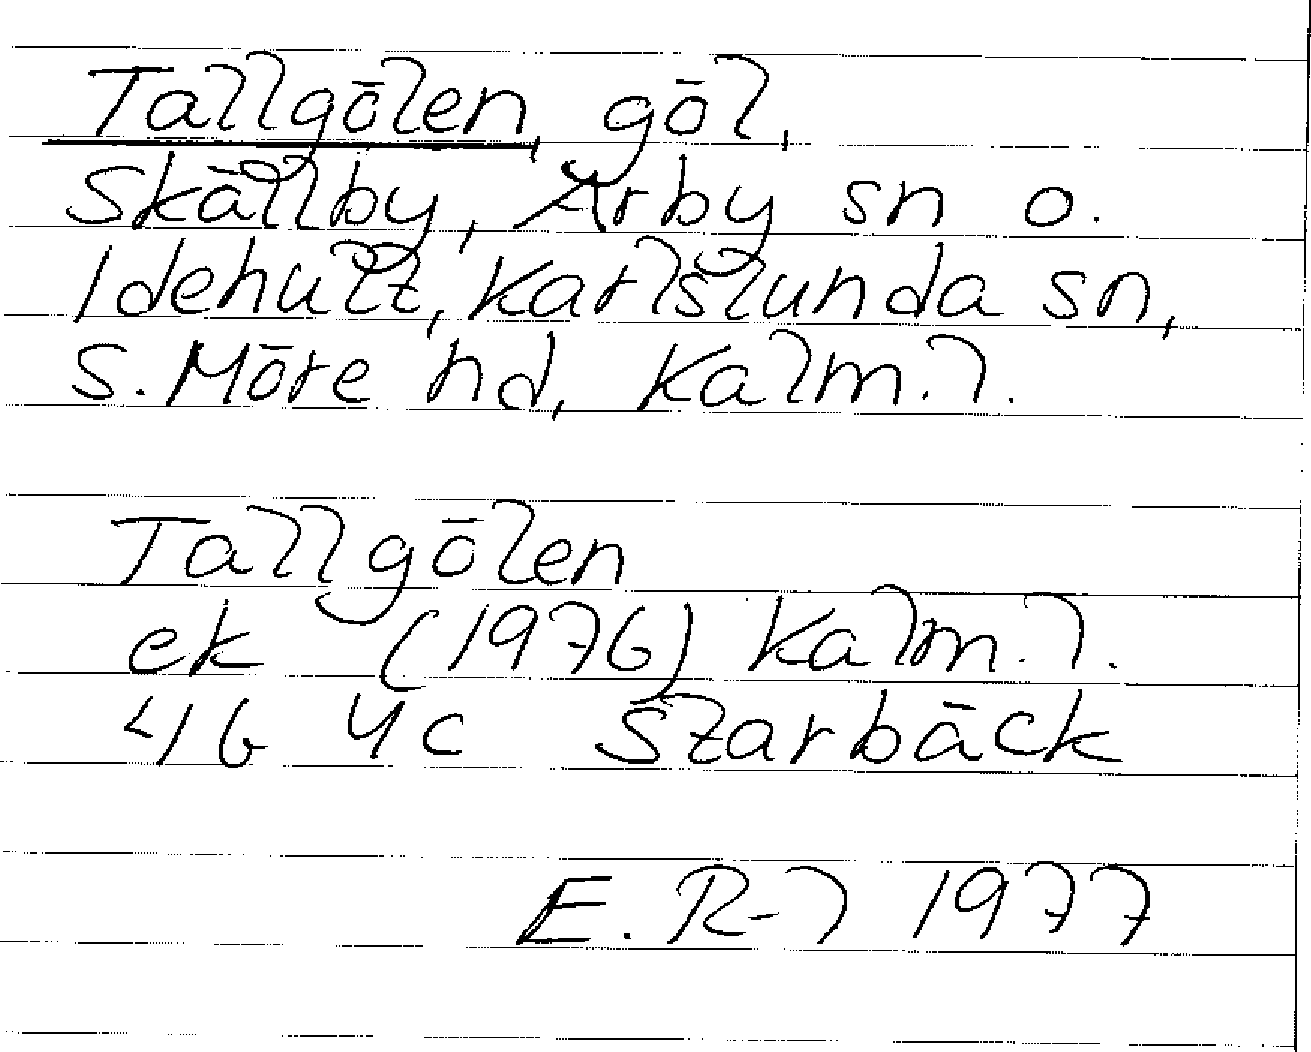 Tallgölen, göl,
Skällby, Arby sn o.
Idehult, Karlslunda sn,
S. Möre hd, Kalm. l.
Tallgölen
ek (1976) Kalm. l.
4G 4c Starbäck
E. R-l 1977